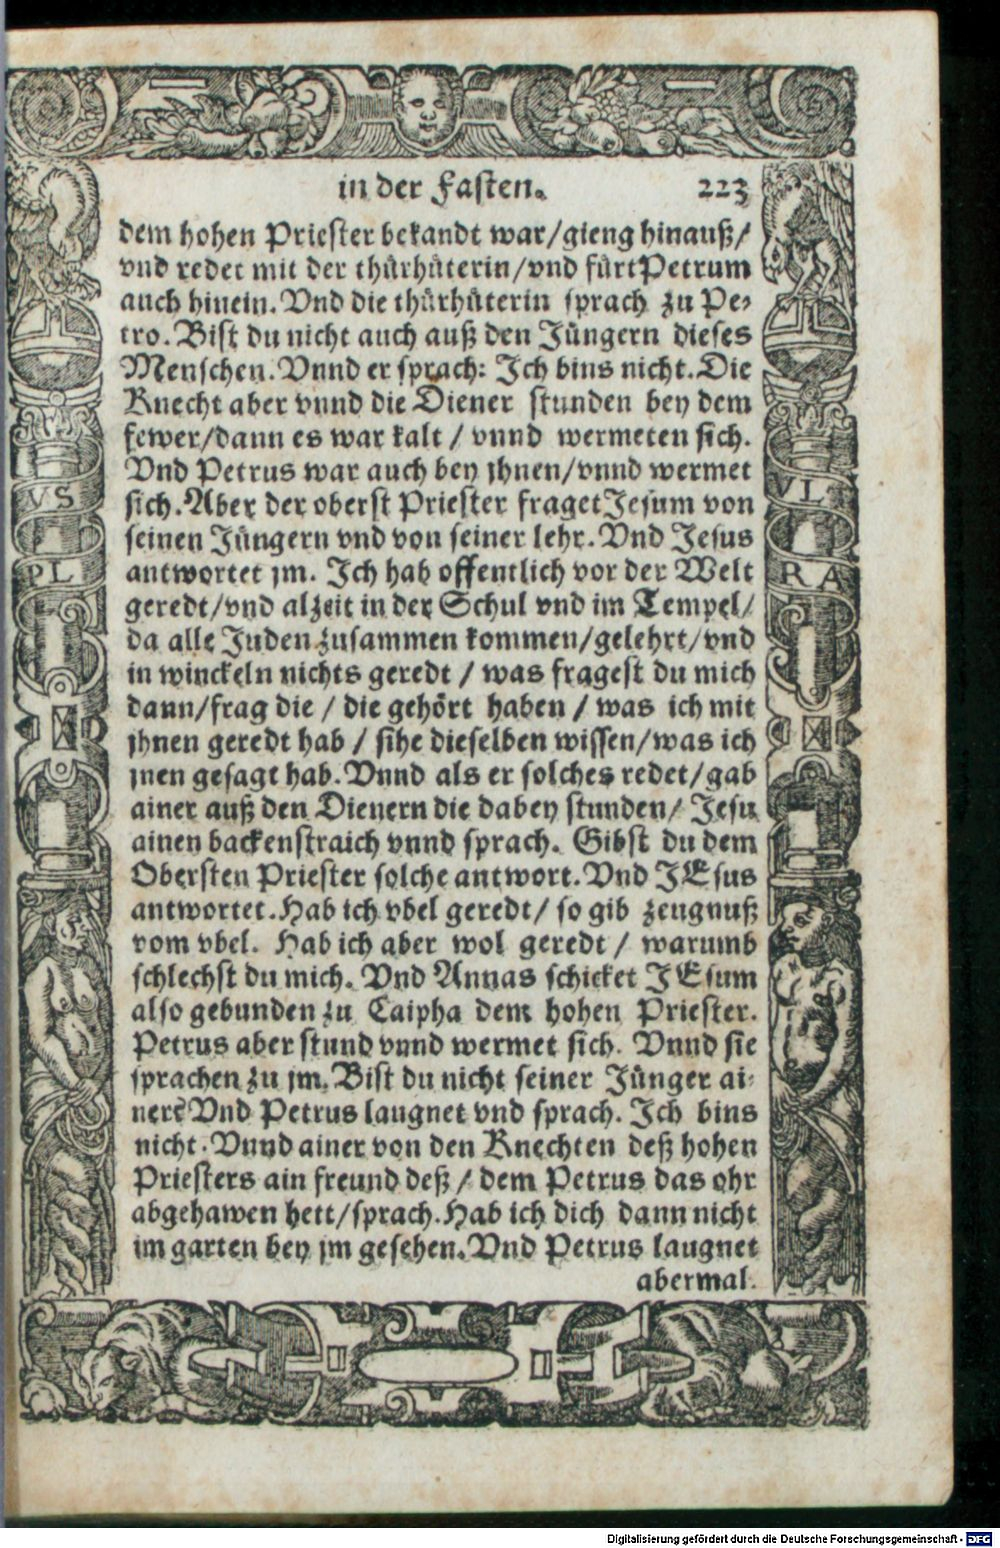 in der Fasten. 223
dem hohen Priester bekandt war/gieng hinauß/
vnd redet mit der thürhüterin/vnd fürt Petrum
auch hinein. Vnd die thürhüterin sprach zu Pe⸗
tro. Bist du nicht auch auß den Jüngern dieses
Menschen. Vnnd er sprach: Ich bins nicht. Die
Knecht aber vnnd die Diener stunden bey dem
fewer/dann es war kalt / vnnd wermeten sich.
Vnd Petrus war auch bey jhnen/vnnd wermet
sich. Aber der oberst Priester fraget Jesum von
seinen Jüngern vnd von seiner lehr. Vnd Jesus
antwortet jm. Ich hab offentlich vor der Welt
geredt/vnd alzeit in der Schul vnd im Tempel/
da alle Juden zusammen kommen/gelehrt/vnd
in winckeln nichts geredt / was fragest du mich
dann/frag die / die gehört haben / was ich mit
jhnen geredt hab / sihe dieselben wissen/was ich
jnen gesagt hab. Vnnd als er solches redet/gab
ainer auß den Dienern die dabey stunden/ Jesu
ainen backenstraich vnnd sprach. Gibst du dem
Obersten Priester solche antwort. Vnd JEsus
antwortet. Hab ich vbel geredt/ so gib zeugnuß
vom vbel. Hab ich aber wol geredt / warumb
schlechst du mich. Vnd Annas schicket JEsum
also gebunden zu Caipha dem hohen Priester.
Petrus aber stund vnnd wermet sich. Vnnd sie
sprachen zu jm. Bist du nicht seiner Jünger ai⸗
ner? Vnd Petrus laugnet vnd sprach. Ich bins
nicht. Vnnd ainer von den Knechten deß hohen
Priesters ain freund deß / dem Petrus das ohr
abgehawen hett/sprach. Hab ich dich dann nicht
im garten bey jm gesehen. Vnd Petrus laugnet
abermal.
VS
PL
VL
RA
Digitalisierung gefördert durch die Deutsche Forschungsgemeinschaft - DFG